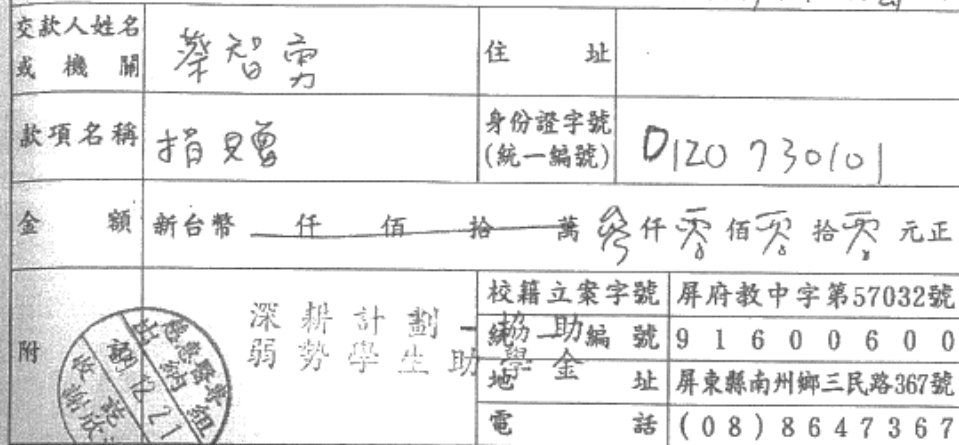 交款人姓名
或機關
蔡智勇
住址
款項名稱
捐贈
身份證字號
(統一編號)
D120730101
金額
新台幣 仟 佰 拾 萬 參 仟 零 佰 零 拾 零 元正
附
深耕計劃-協助
弱勢學生助學金
校籍立案字號
屏府教中字第57032號
統一編號
9 1 6 0 0 6 0 0
地址
屏東縣南州鄉三民路367號
電話
(08)8647367